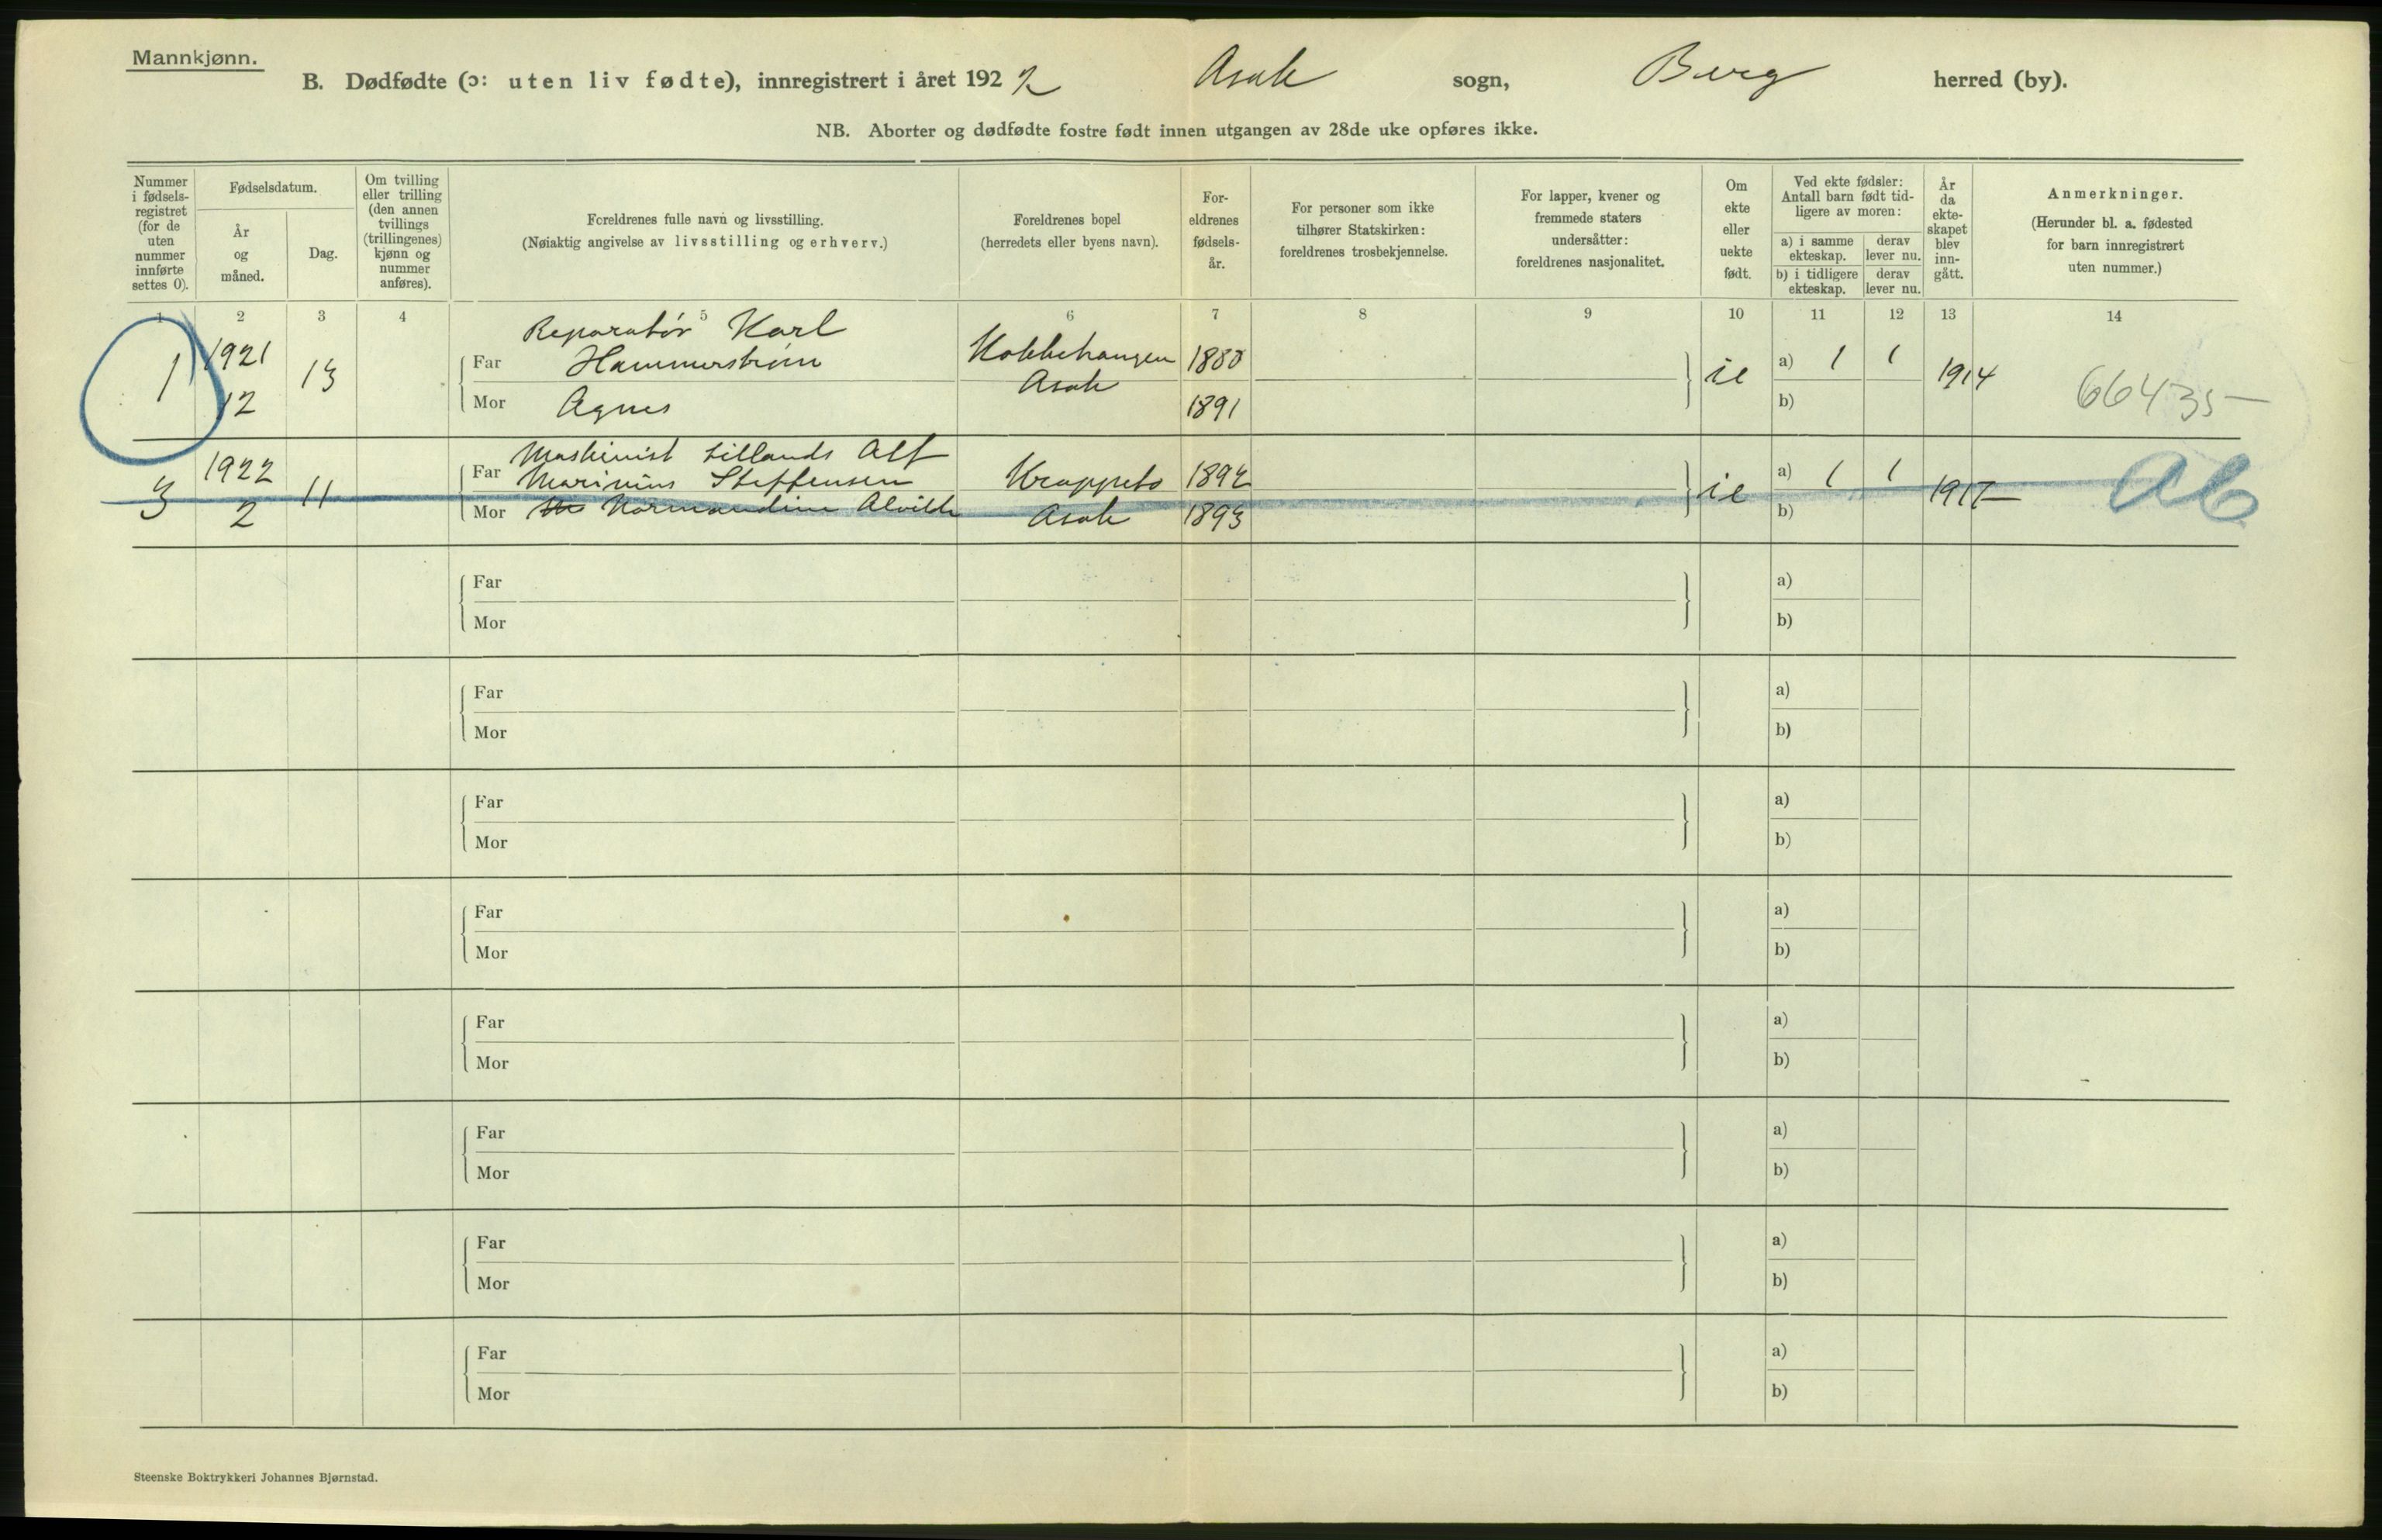 Mannkjønn.
B. Dødfødte (ɔ: uten liv fødte), innregistrert i året 1922 Asak sogn, Berg herred (by).
NB. Aborter og dødfødte fostre født innen utgangen av 28de uke opføres ikke.
Nummer i fødsels-registret (for de uten nummer innførte settes 0).
Fødselsdatum.
År og måned.
Dag.
Om tvilling eller trilling (den annen tvillings (trillingenes) kjønn og nummer anføres).
Foreldrenes fulle navn og livsstilling.
(Nøiaktig angivelse av livsstilling og erhverv.)
Foreldrenes bopel
(herredets eller byens navn).
For-eldrenes fødsels-år.
For personer som ikke tilhører Statskirken: foreldrenes trosbekjennelse.
For lapper, kvener og fremmede staters undersåtter: foreldrenes nasjonalitet.
Om ekte eller uekte født.
Ved ekte fødsler: Antall barn født tid-ligere av moren:
a) i samme ekteskap.
derav lever nu.
b) i tidligere ekteskap.
derav lever nu.
År da ekte-skapet blev inn-gått.
Anmerkninger.
(Herunder bl. a. fødested for barn innregistrert uten nummer.)
1 2 3 4 5 6 7 8 9 10 11 12 13 14
Reparatør Karl
1 1921 13 Far Hammerstrøm 1880 a) 1 1 1914
12 Mor Agnes Asak 1891 ie b) 66435
Maskinist Alf
3 1922 11 Far Marinius Steffensen Krappeto 1892 a) 1 1 1917 Ab
2 Mor Normandine Alvilde Asak 1893 ie b)
Far a)
Mor b)
Far a)
Mor b)
Far a)
Mor b)
Far a)
Mor b)
Far a)
Mor b)
Far a)
Mor b)
Far a)
Mor b)
Far a)
Mor b)
Steenske Boktrykkeri Johannes Bjørnstad.